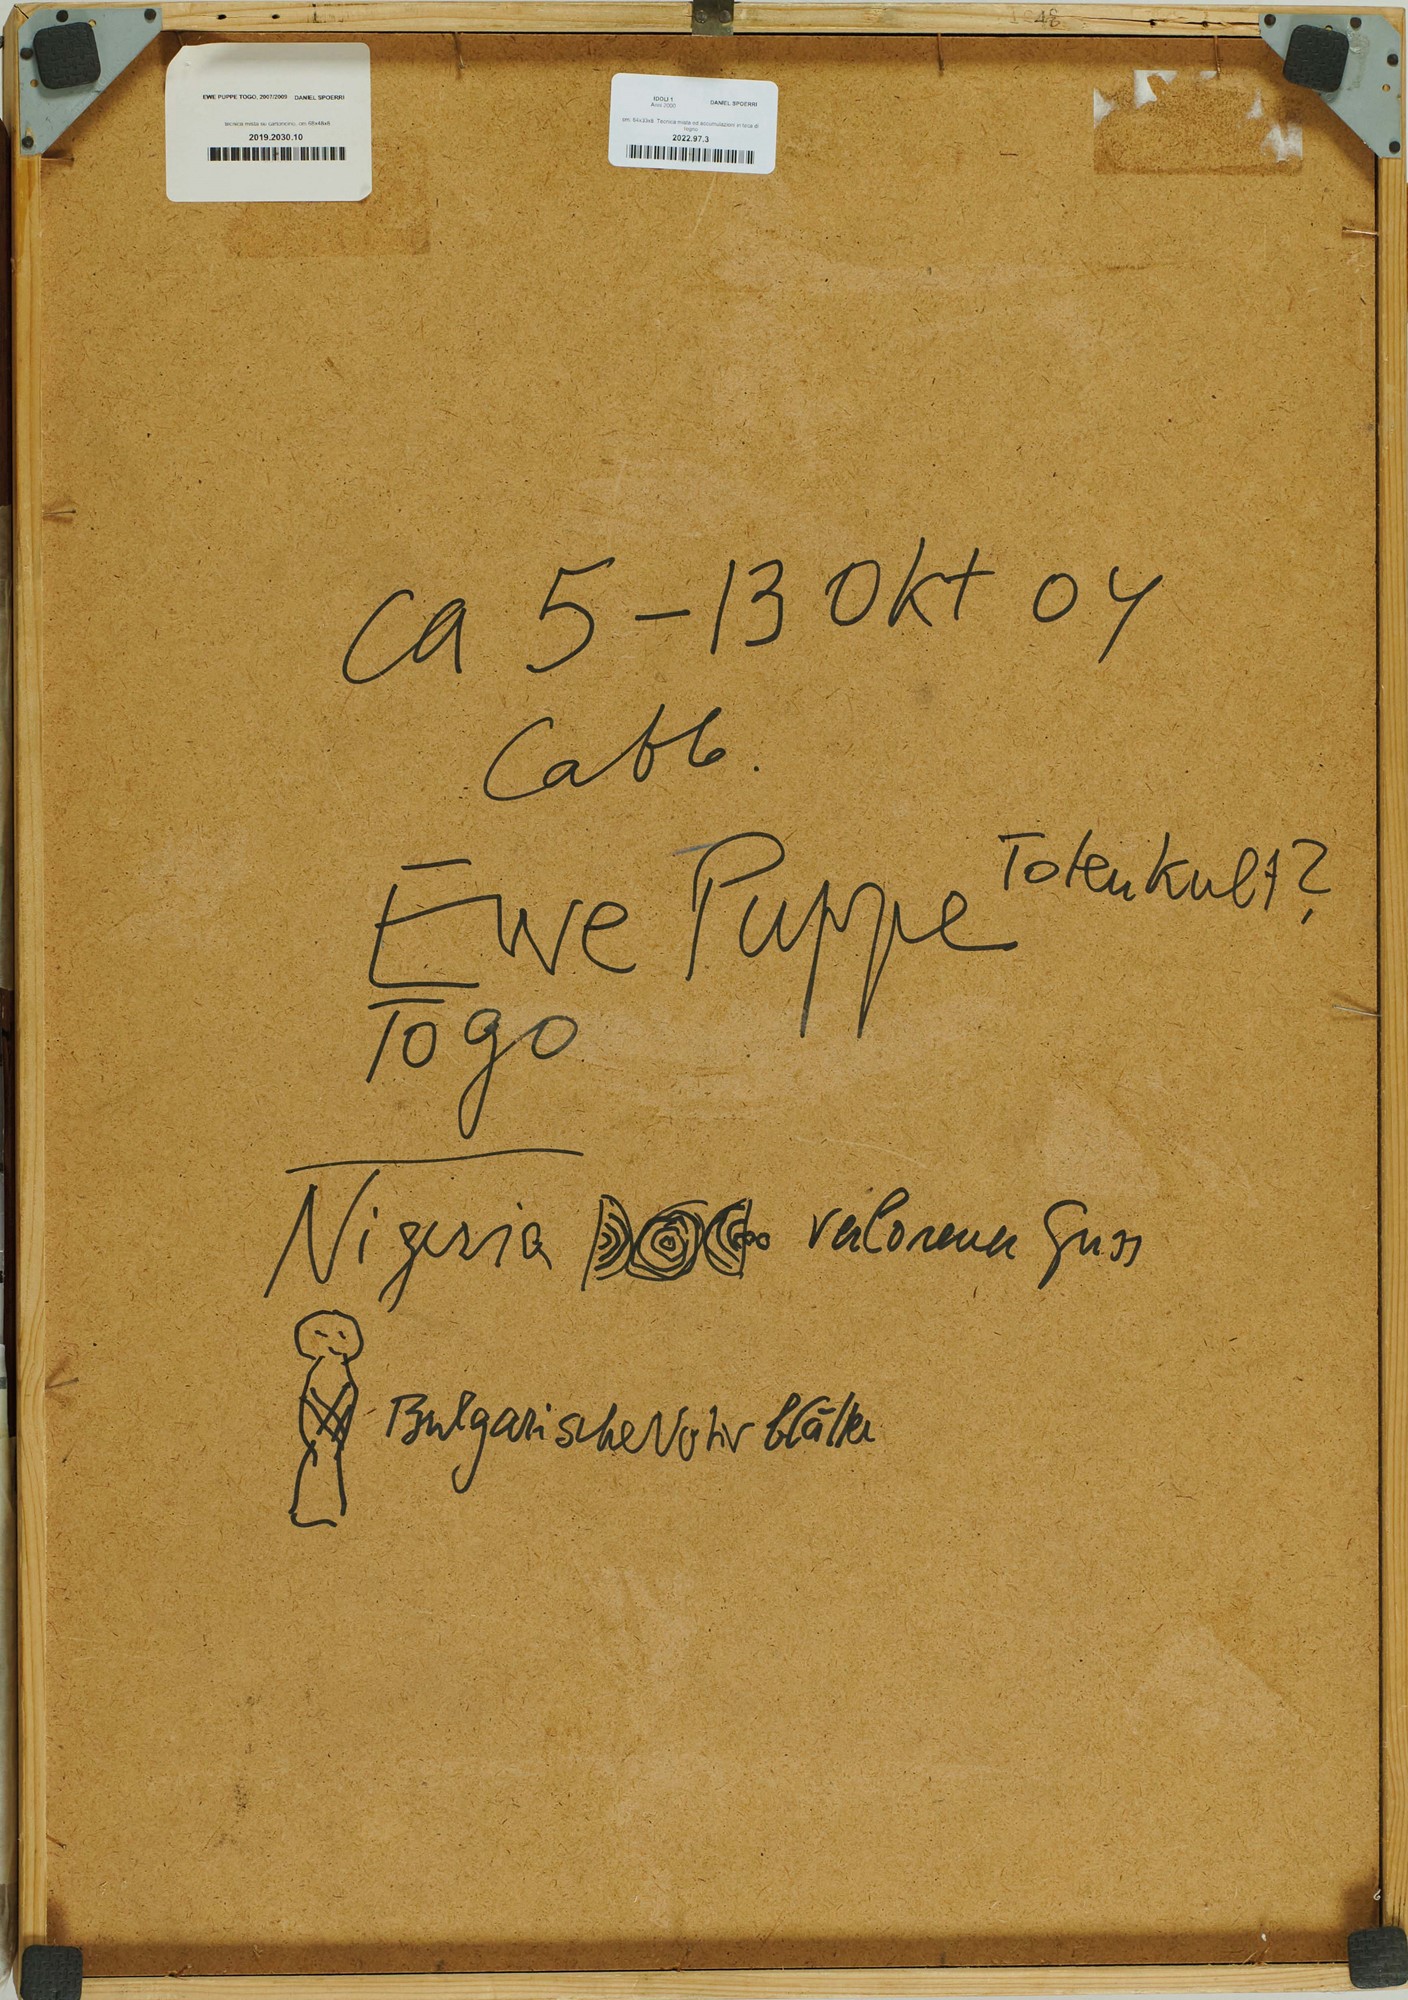 1848
EWE PUPPE TOGO, 2007/2009 DANIEL SPOERRI
tecnica mista su cartoncino, cm 68x48x8
2019.2030.10
IDOLI 1 DANIEL SPOERRI
Anni 2000
cm. 64x33x8 Tecnica mista ed accumulazioni in teca di
legno
2022.97.3
ca 5-13 Okt 04
Cabb.
Ewe Puppe Totenkult?
Togo
Nigeria verlorener Guss
Bulgarische Votivblätter